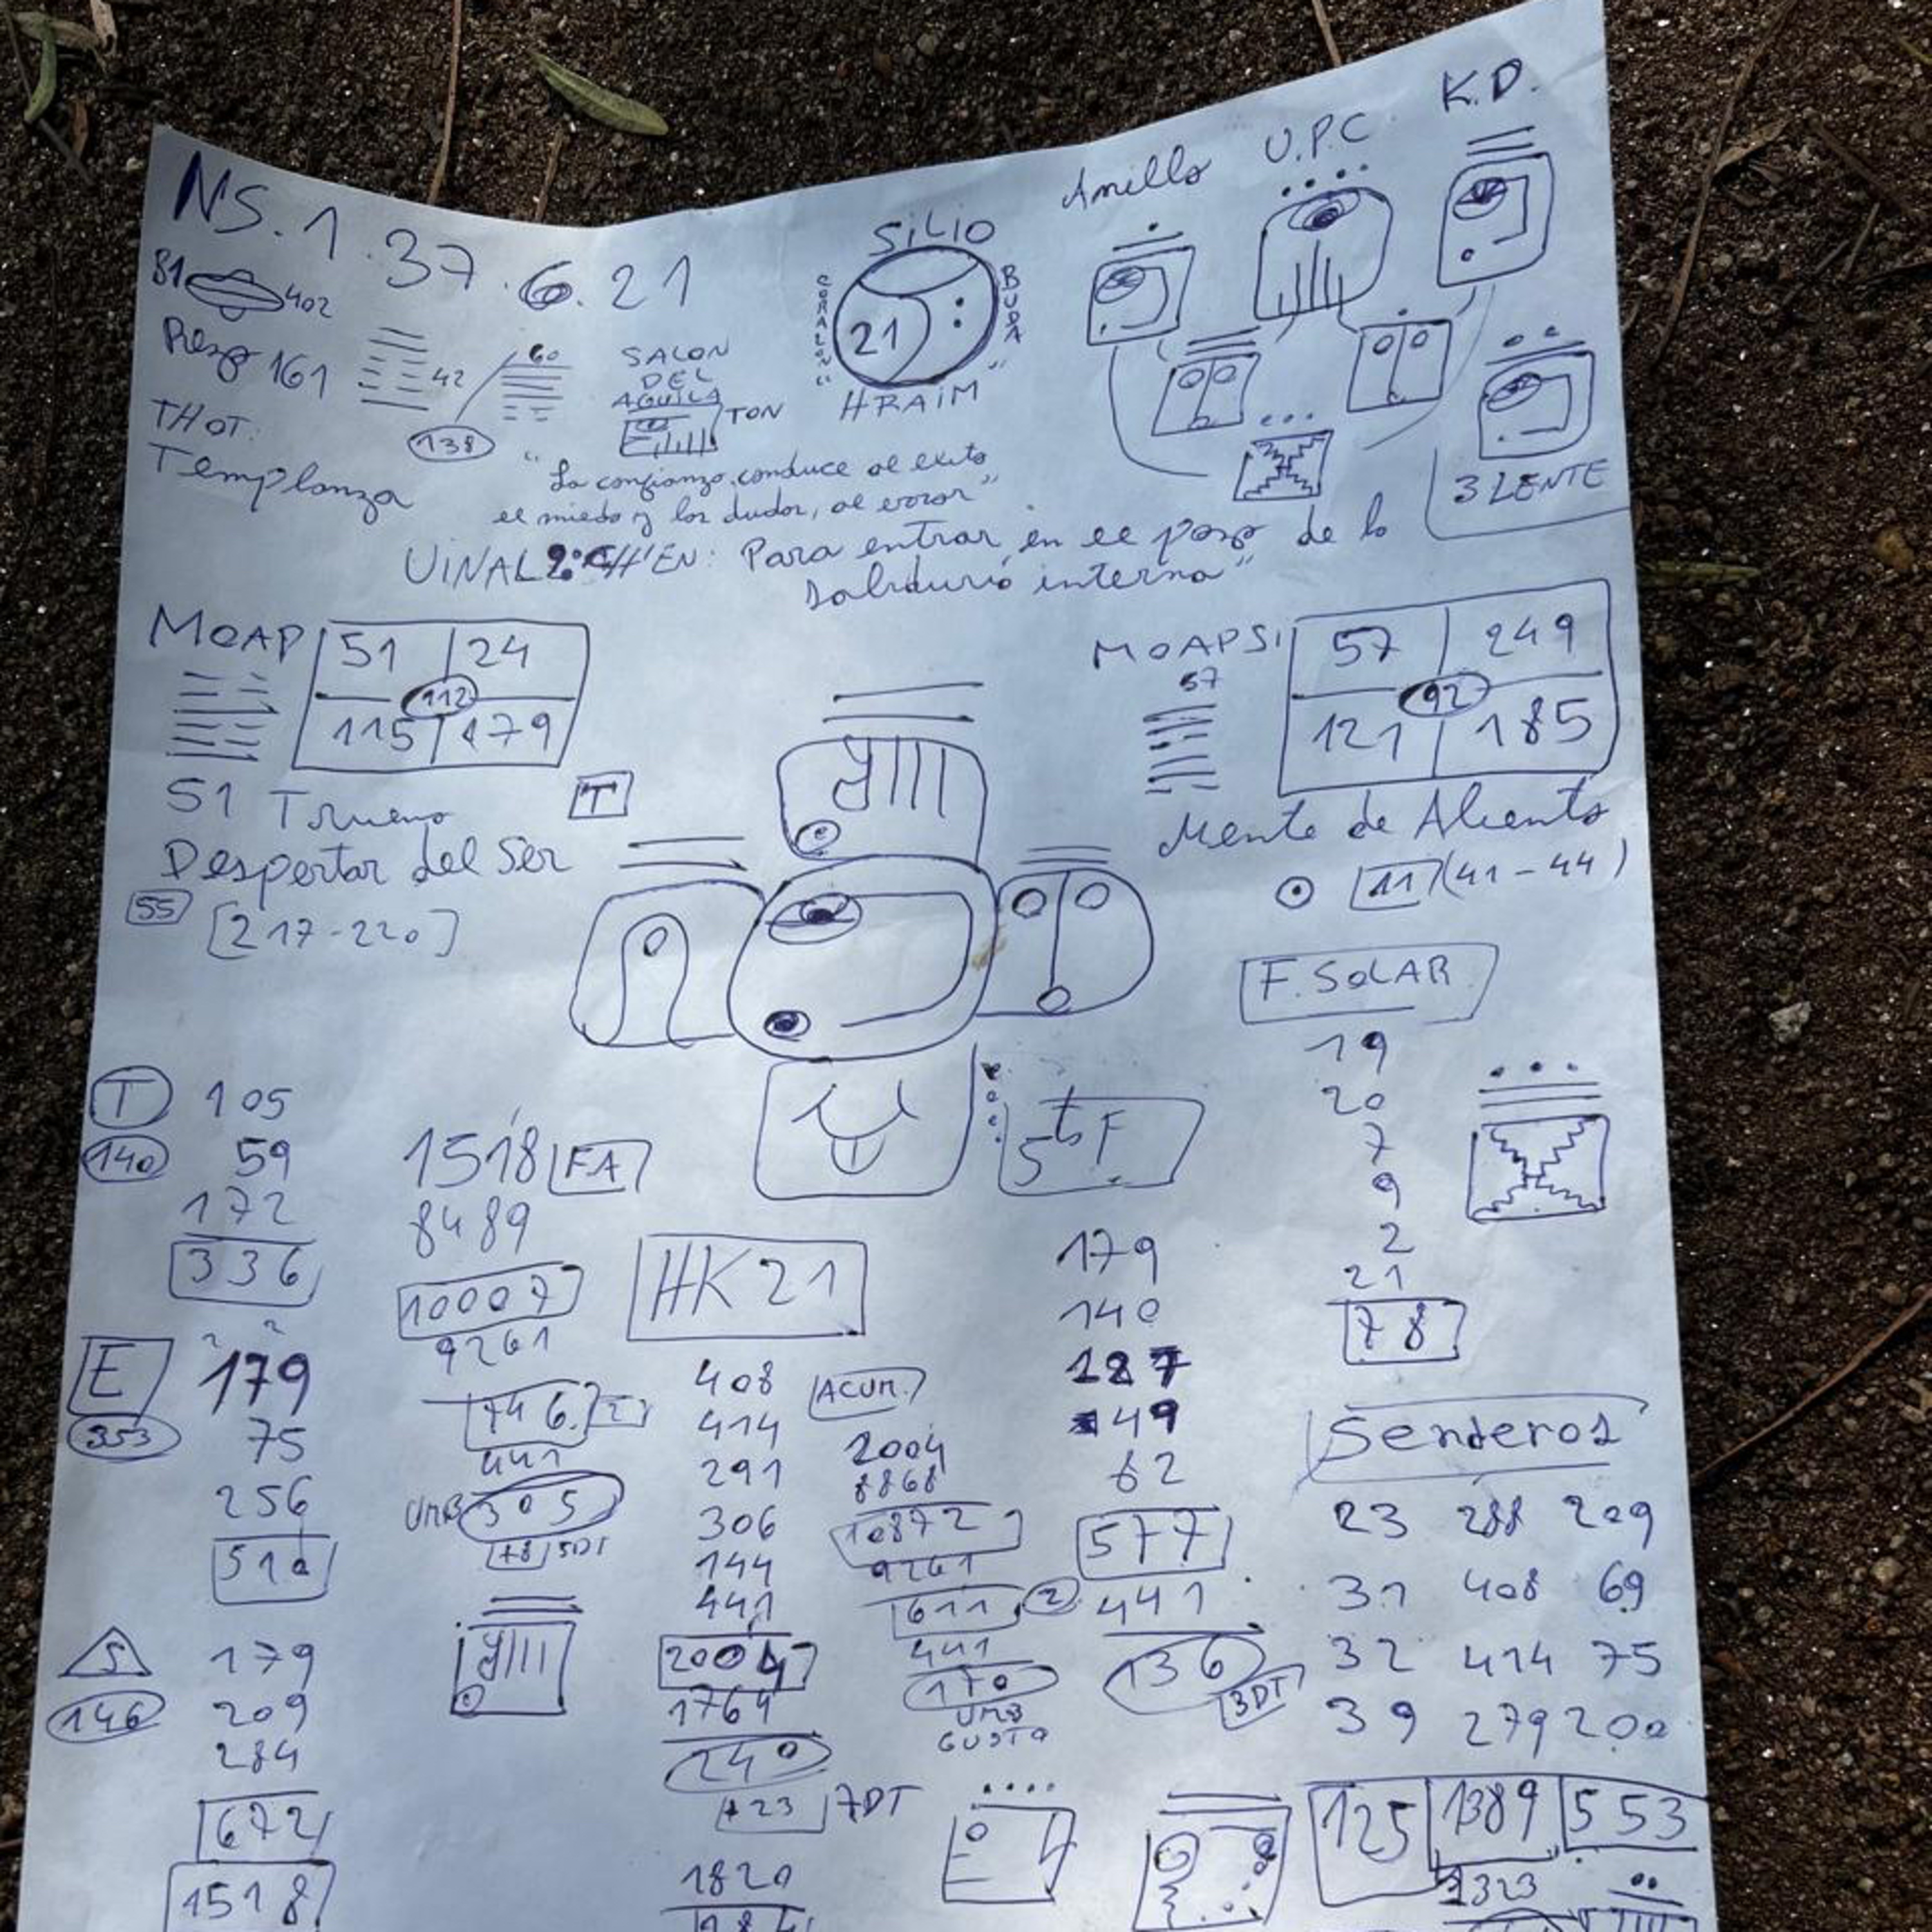 NS.1.37.6.21
81 402
SILIO
CORAZON
BUDA
21
"HRAIM"
Anillo
U.P.C
K.D.
161
42
60
138
SALON
DEL
AGUILA
TON
THOT:
Templanza
"La confianza conduce al exito
el miedo y las dudas, al error"
3 LENTE
UINAL CH'EN: Para entrar en el pozo de la
sabiduria interna"
MOAP
51 24
112
115 179
51 Trueno
Despertar del Ser
55
[217-220]
T
MOAPSI
57
57 249
92
121 185
Mente de Aliento
11 (41-44)
F. SOLAR
19
20
7
9
2
21
78
T
140
105
59
172
336
1518 FA
8489
10007
9261
746.
441
UMB 305
+8 5DT
5 ta F
HK21
E
353
179
75
256
510
408
414
291
306
144
441
2004
1764
240
+23 7DT
1820
ACUM.
2004
8868
10872
9261
1611 2
441
170
UMB
GUSTO
179
140
127
49
82
577
441
136
3DT
Senderos
23 288 209
31 408 69
32 414 75
39 279 200
125 1389 553
1323
S
146
179
209
284
672
1518